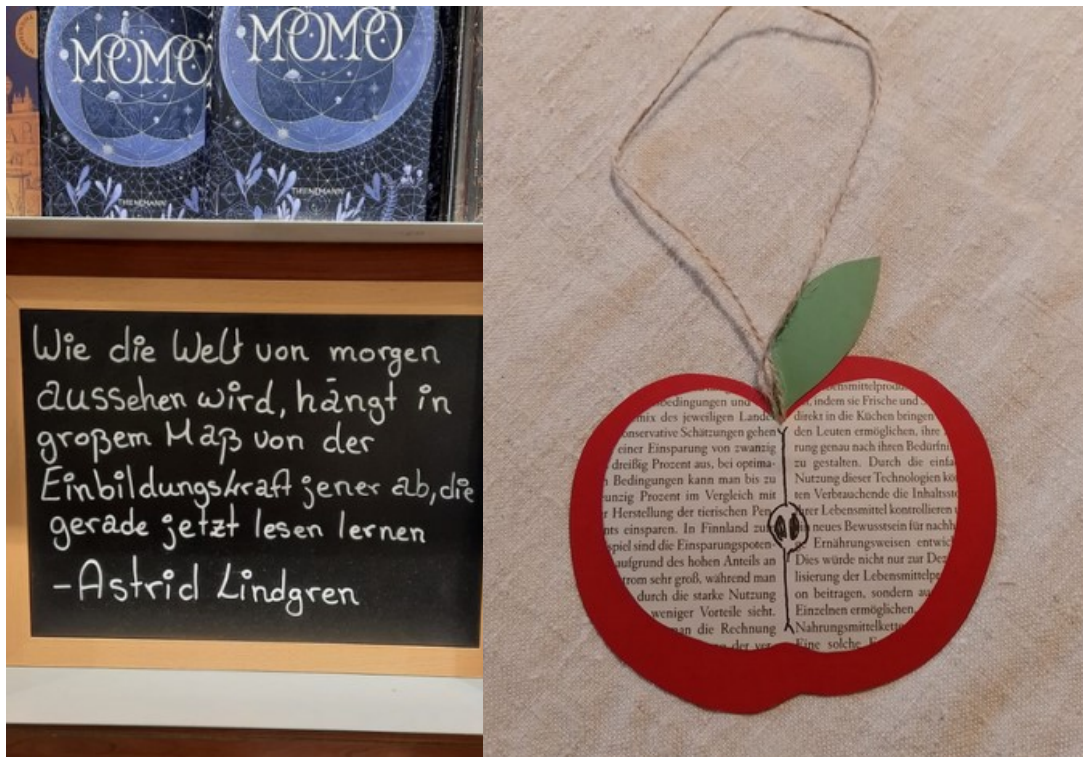 MOMO
MOMO
THIENEMANN
THIENEMANN
Wie die Welt von morgen
aussehen wird, hängt in
großem Maß von der
Einbildungskraft jener ab, die
gerade jetzt lesen lernen
-Astrid Lindgren
bedingungen und
mix des jeweiligen
onservative Schätzungen gehen
einer Einsparung von zwanzig
dreißig Prozent aus, bei optima-
Bedingungen kann man bis zu
unzig Prozent im Vergleich mit
r Herstellung der tierischen
nts einsparen. In Finnland
spiel sind die Einsparungspoten-
aufgrund des hohen Anteils an
trom sehr groß, während man
durch die starke Nutzung
weniger Vorteile sieht.
man die Rechnung
der ver
ensmittelprodu
indem sie Frische und
direkt in die Küchen bringen
den Leuten ermöglichen, ihre
rung genau nach ihren Bedürfni
zu gestalten. Durch die einfa
Nutzung dieser Technologien
ten Verbrauchende die Inhaltssto
ihrer Lebensmittel kontrollieren
neues Bewusstsein für nachh
Ernährungsweisen entwic
Dies würde nicht nur zur Dez
lisierung der Lebensmittelpr
on beitragen, sondern au
Einzelnen ermöglichen,
Nahrungsmittelkette
Eine solche